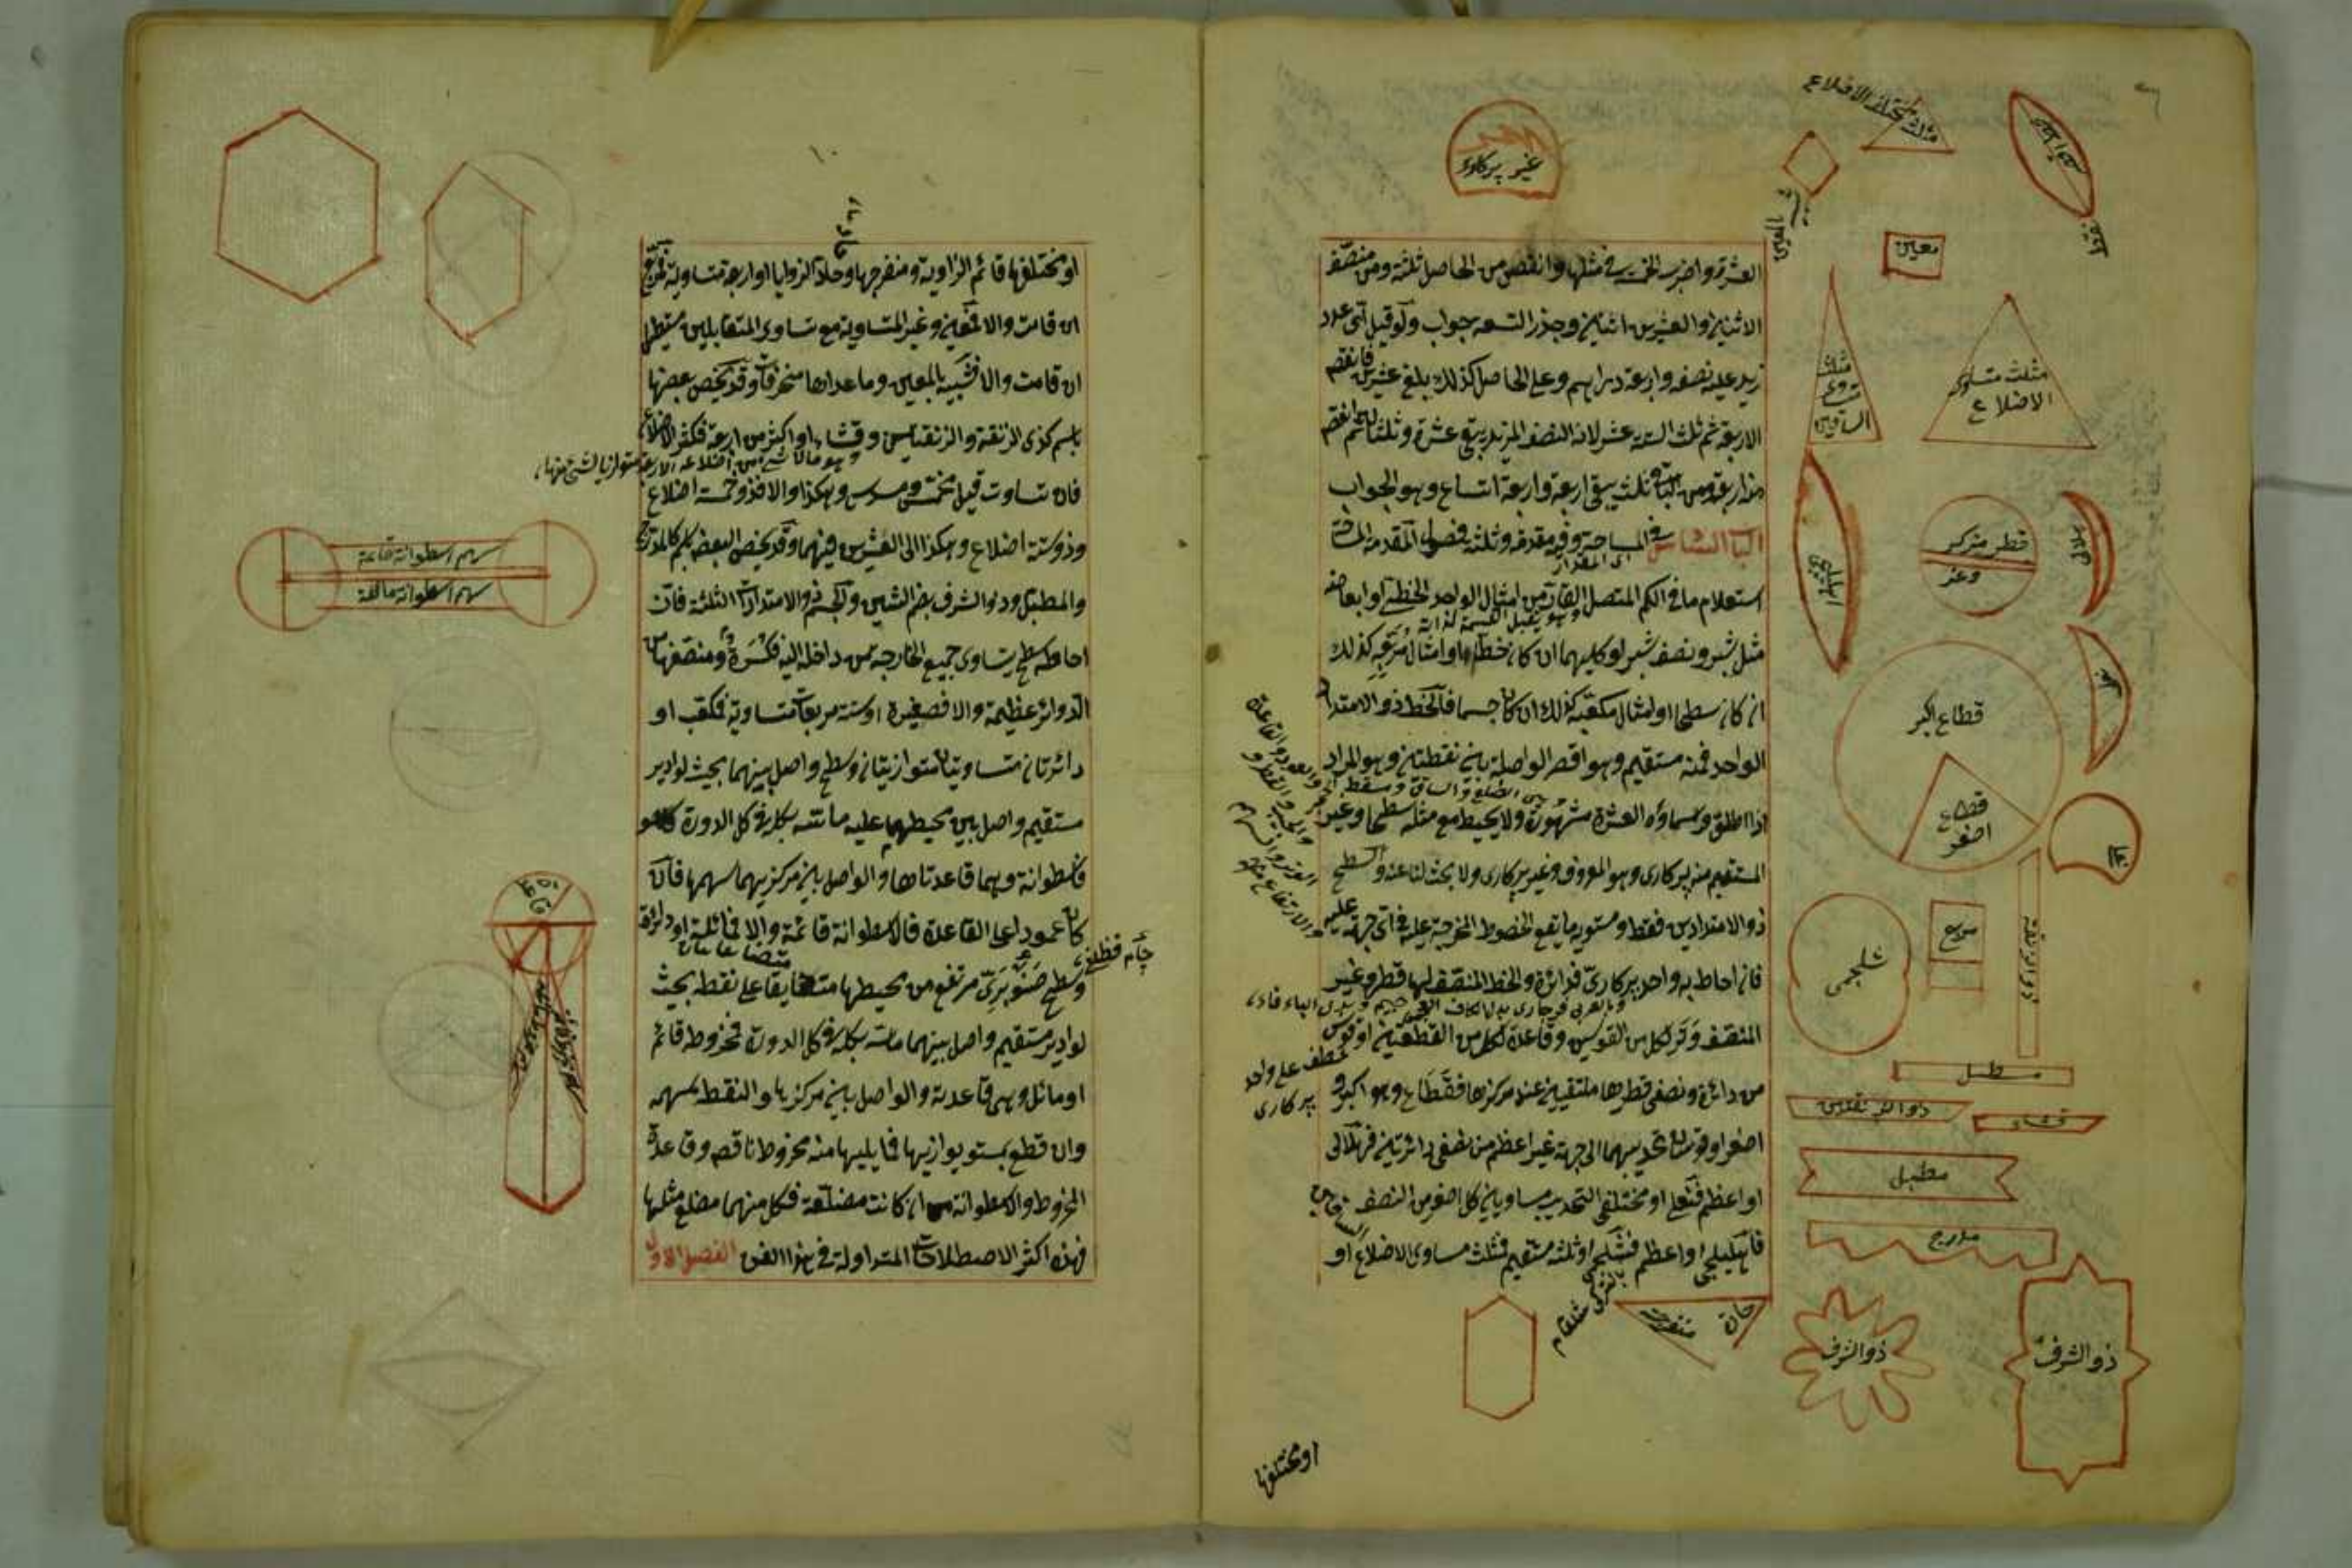 العشرة واضرب الخمسة في مثلها وانقص من الحاصل ثلثة ومن منصف
الاثنين او العشرين اثنين وجذر التسعه جواب ولو قيل اى عدد
زيد عليه نصفه واربعة دراهم وعلى الحاصل كذلك بلغ عشرين فانقص
الاربعة ثم ثلث الستة عشر لانه النصف المزيد يبقى عشرة وثلثان ثم انقص
منها اربعة ومن الباقى ثلثه يبقى اربعة واربعة اتساع وهو الجواب
الباب السادس فى المساحة وفيه مقدمة وثلثة فصول المقدمة المساحة
استعلام ما فى الكم المتصل القار من امثال الواحد الخطى او ابعاضه
وهو يقبل القسمة لذاته
مثل شبر ونصف شبر او كليهما ان كان خطا او امثال مربعه كذلك
ان كان سطحا او امثال مكعبه كذلك ان كان جسما فالخط ذو الامتداد
الواحد فمنه مستقيم وهو اقصر الواصلة بين نقطتين وهو المراد
اذا اطلق واسماؤه العشرة مشهورة ولا يحيط مع مثله بسطح وغير
المستقيم منه پركارى وهو المعروف وغير پركارى ولا بحث لنا عنه والسطح
ذو الامتدادين فقط ومستويه ما يقع الخطوط المخرجة عليه فى اى جهة عليه
فان احاط به واحد پركارى فدائرة والخط المنصف لها قطر وغير
المنصف وتر لكل من القوسين وقاعدة لكل من القطعتين او قوس
من دائرة ونصفى قطرها ملتقيين عند مركزها فقطاع وهو اكبر و
اصغر او قوسان تحديبهما الى جهة غير اعظم من نصفى دائرتين فهلالى
او اعظم فنعلى او مختلفى التحديب متساويان كل اصغر من النصف
فاهليلجى او اعظم فشلجمى او ثلثة مستقيمة فمثلث متساوى الاضلاع او
او مختلفها
غير پركارى
مثلث مختلف الاضلاع
معين
مثلث متساوى الاضلاع
مثلث متساوى الساقين
قطر مركز
وتر
هلالى
اهليلجى
قطاع اكبر
قطاع اصغر
مربع
شلجمى
ذو الزنقة
مستطيل
ذو الزنقتين
قثاء
مطبل
مدرج
ذو الشرف
ذو الشرف
منفرجة
حادة
عطف على واحد
پركارى
١٠
او مختلفها قائم الزاوية ومنفرجها وحاد الزوايا او اربعة متساوية فمربع
ان قامت والا فمعين وغير المتساوية مع تساوى المتقابلين مستطيل
ان قامت والا فشبيه بالمعين وما عداها منحرفات وقد يخص بعضها
باسم كذى الزنقة والزنقتين وقثاء او اكثر من اربعة فكثير الاضلاع
فان تساوت قيل مخمس ومسدس وهكذا والا فذو خمسة اضلاع
وذو ستة اضلاع وهكذا الى العشرة فيهما وقد يخص البعض باسم كالمدرج
والمطبل وذو الشرف بضم الشين والجسم ذو الامتدادات الثلثة فان
احاطه سطح يتساوى جميع الخارجة من داخله اليه فكرة ومنصفها من
الدوائر عظيمة والا فصغيرة او ستة مربعات متساوية فمكعب او
دائرتان متساويتان متوازيتان وسطح واصل بينهما بحيث لو ادير
مستقيم واصل بين محيطيهما عليه ماسه بكله فى كل الدورة
فاسطوانة وهما قاعدتاها والواصل بين مركزيهما سهمها فان
كان عمودا على القاعدة فالاسطوانة قائمة والا فمائلة او دائرة
وسطح صنوبرى مرتفع من محيطها متضايقا على نقطة بحيث
لو ادير مستقيم واصل بينهما ماسه بكله فى كل الدورة فمخروط قائم
او مائل وهى قاعدته والواصل بين مركزها والنقطة سهمه
وان قطع بمستو يوازيها فما يليها منه مخروط ناقص وقاعدة
المخروط والاسطوانة ان كانت مضلعة فكل منهما مضلع مثلها
فهذه اكثر الاصطلاحات المتداولة فى هذا الفن الفصل الاول
سهم اسطوانة قائمة
سهم اسطوانة مائلة
قاعدة